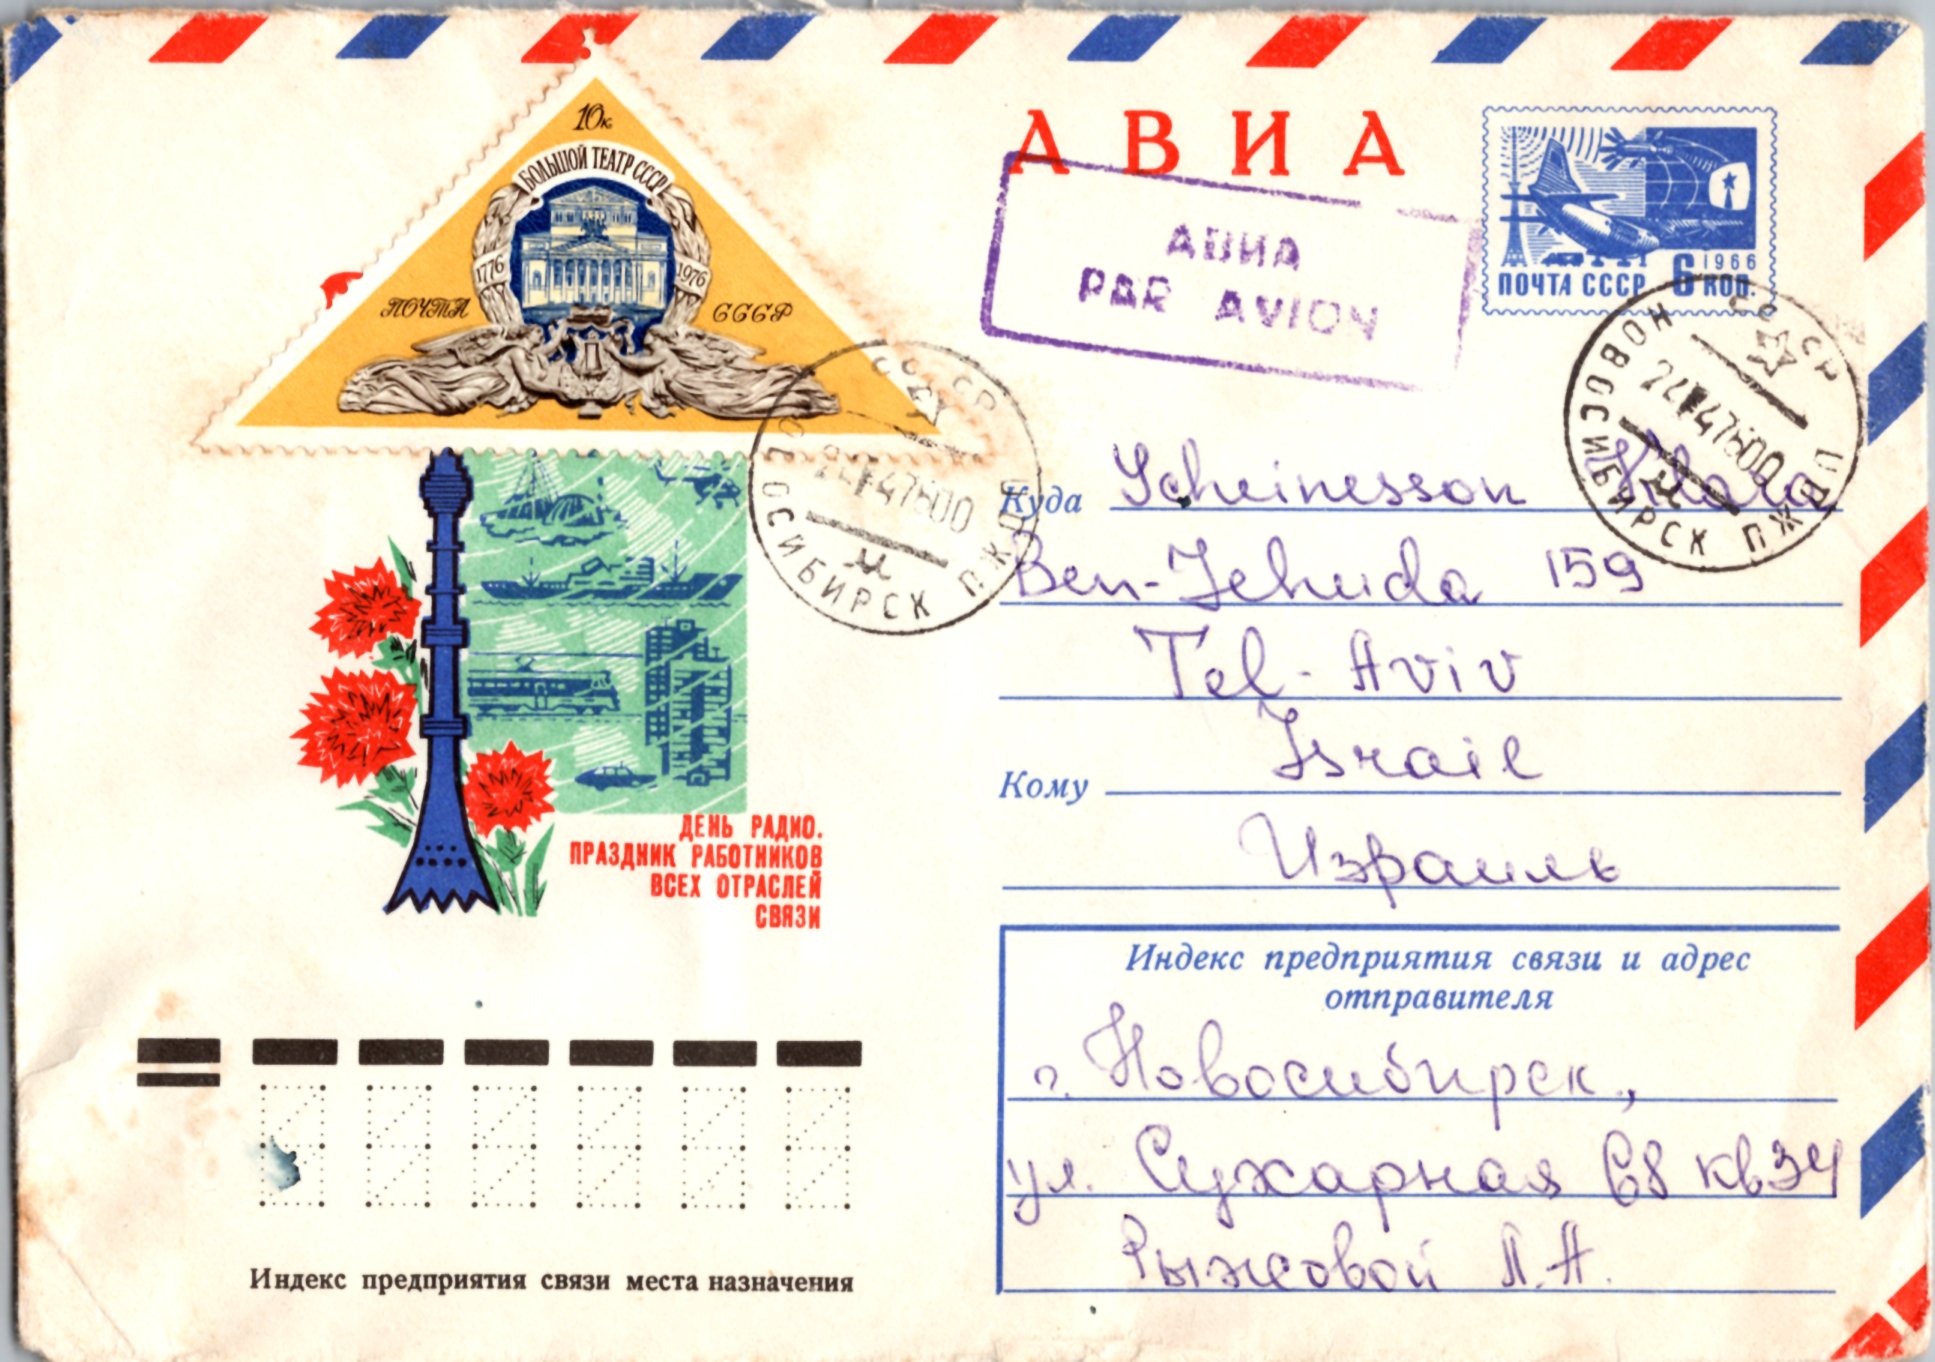 10к
БОЛЬШОЙ ТЕАТР СССР
1776 1976
ПОЧТА СССР
АВИА
АВИА
PAR AVION
1966
ПОЧТА СССР 6 КОП.
СССР
НОВОСИБИРСК ПЖДП
СССР
НОВОСИБИРСК ПЖДП
Куда Scheinesson
Ben-Jehuda 159
Tel-Aviv
Israil
Кому
Израиль
ДЕНЬ РАДИО.
ПРАЗДНИК РАБОТНИКОВ
ВСЕХ ОТРАСЛЕЙ
СВЯЗИ
Индекс предприятия связи и адрес
отправителя
г. Новосибирск,
ул. Сухарная 68 кв 34
Рыжовой Л.А.
Индекс предприятия связи места назначения